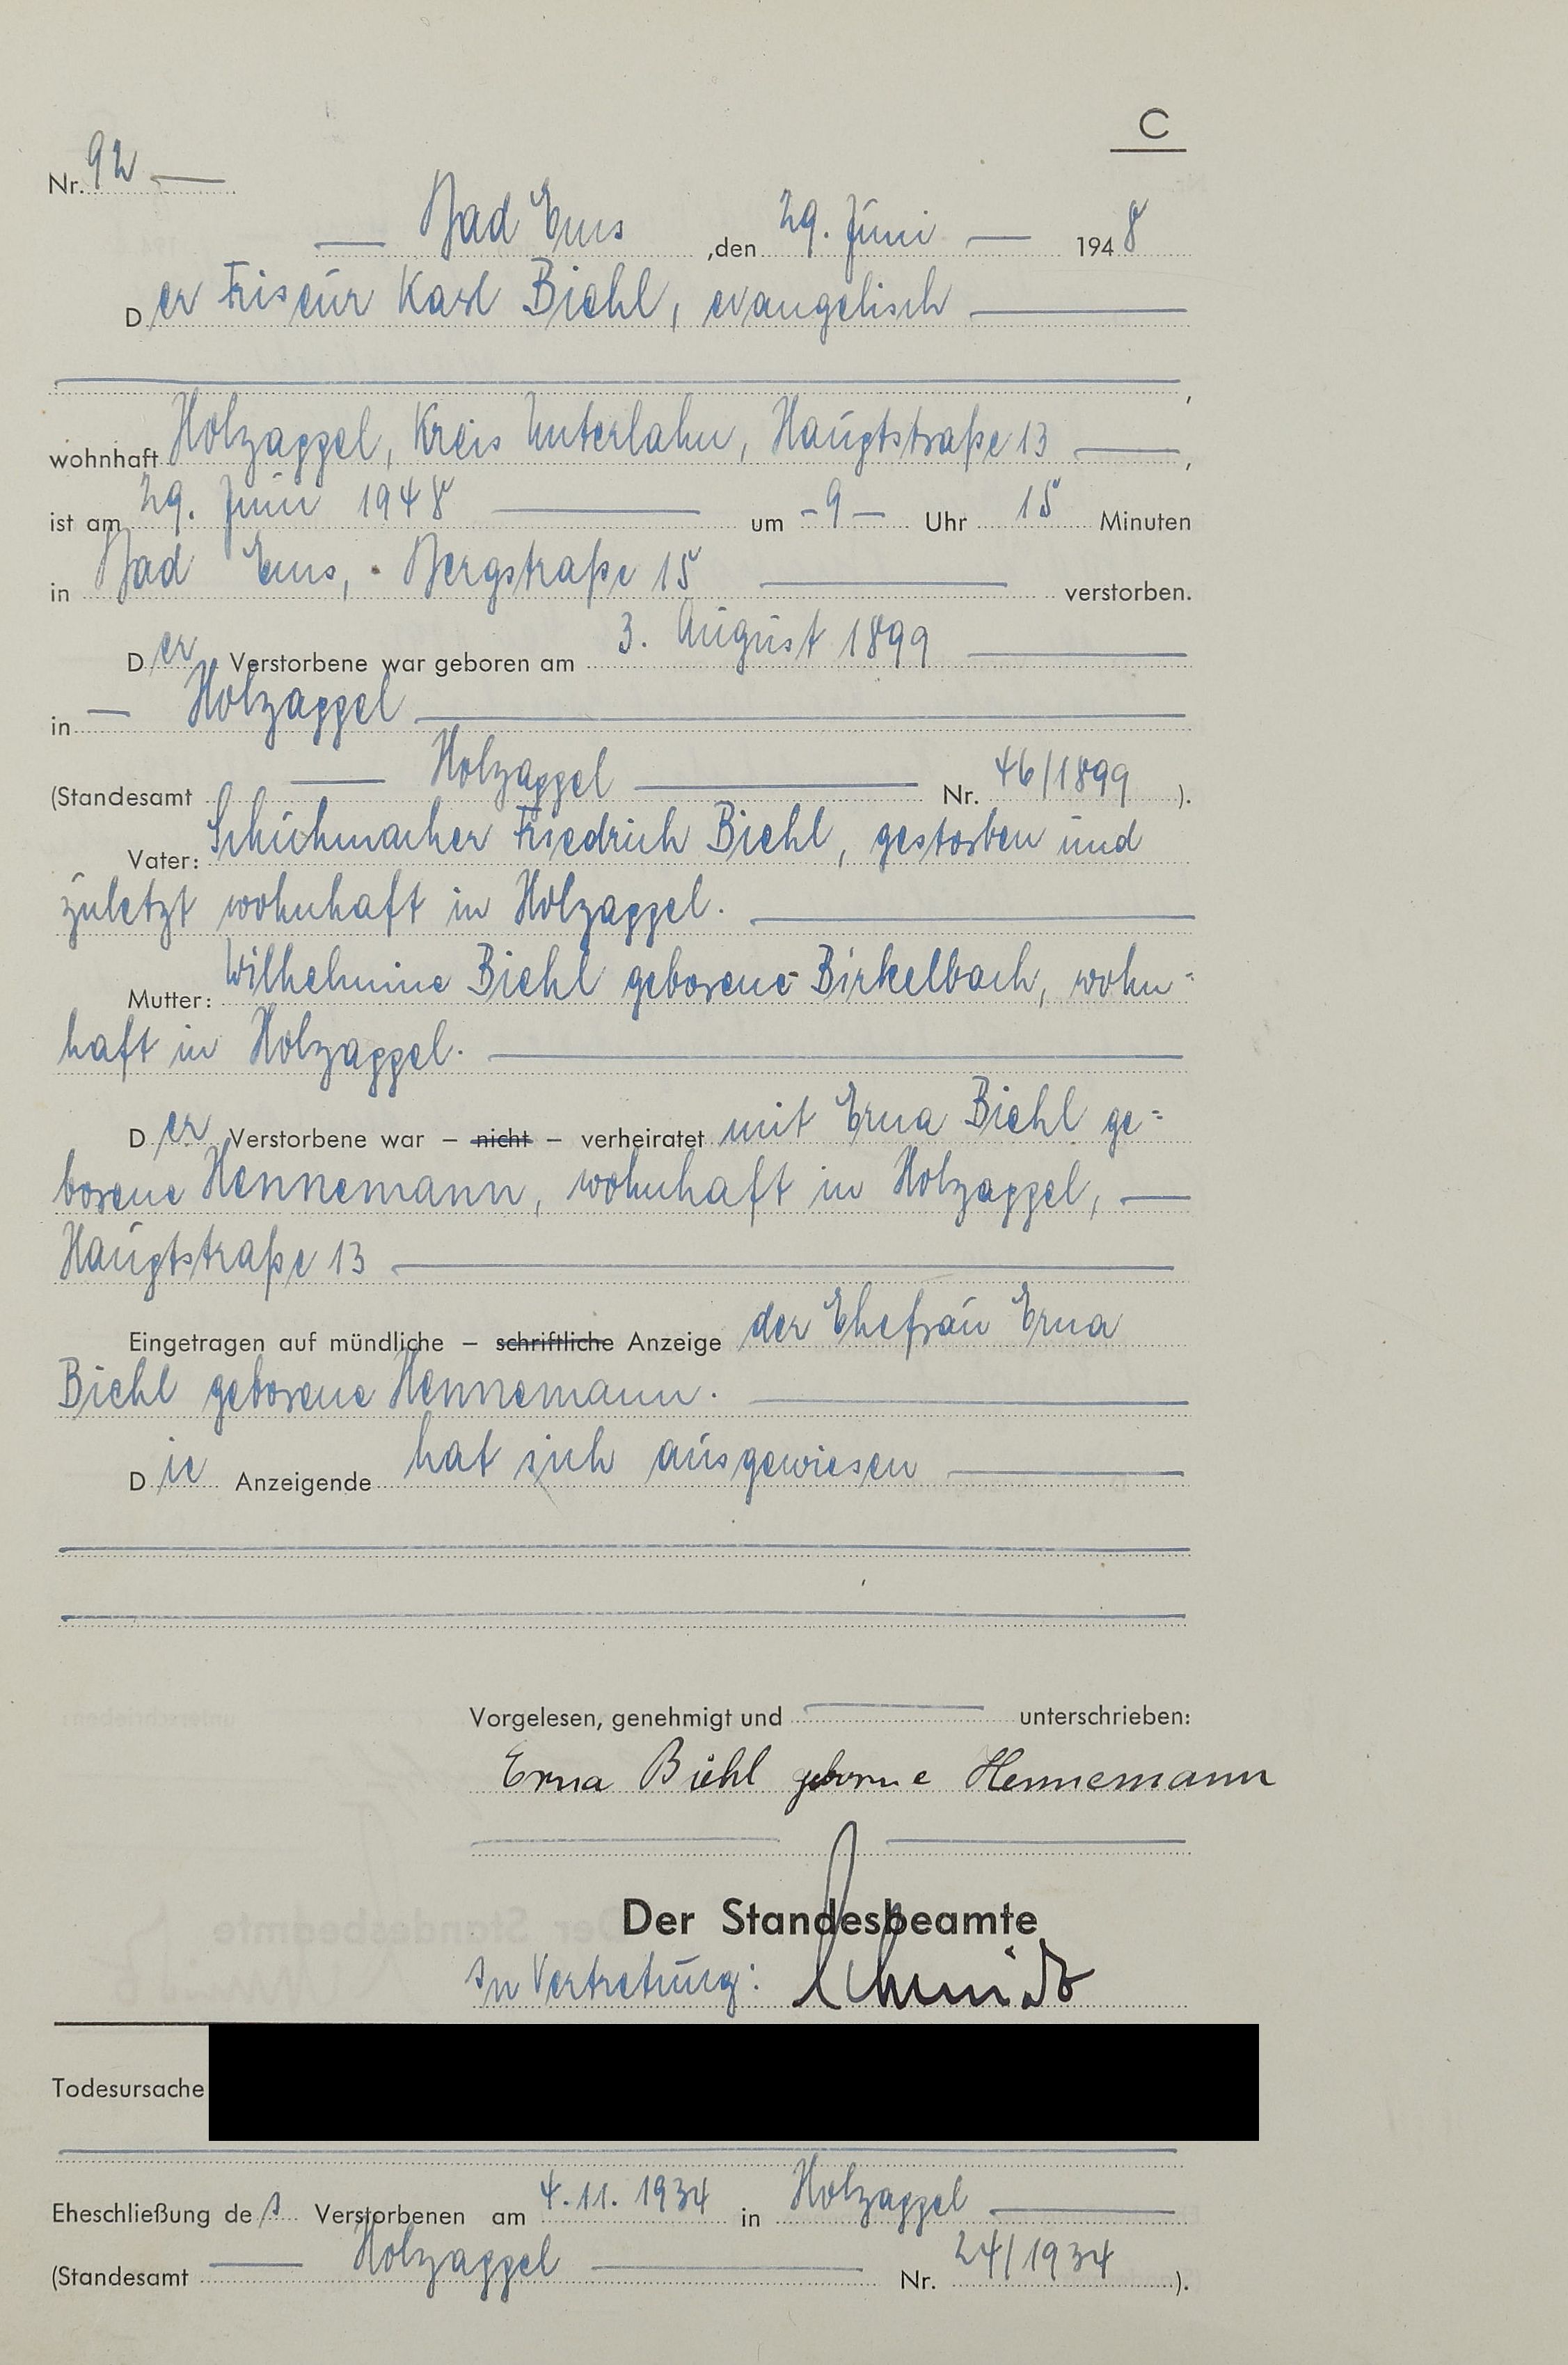 C
Nr. 92
Bad Ems, den 29. Juni 1948
Der Friseur Karl Biehl, evangelisch
,
wohnhaft Holzappel, Kreis Unterlahn, Hauptstraße 13,
ist am 29. Juni 1948 um - 9 - Uhr 15 Minuten
in Bad Ems, Bergstraße 15 verstorben.
Der Verstorbene war geboren am 3. August 1899
in Holzappel
(Standesamt Holzappel Nr. 46/1899).
Vater: Schuhmacher Friedrich Biehl, gestorben und
zuletzt wohnhaft in Holzappel.
Mutter: Wilhelmine Biehl geborene Birkelbach, wohn=
haft in Holzappel.
Der Verstorbene war – nicht – verheiratet mit Erna Biehl ge=
borene Hennemann, wohnhaft in Holzappel,
Hauptstraße 13
Eingetragen auf mündliche – schriftliche Anzeige der Ehefrau Erna
Biehl geborene Hennemann.
Die Anzeigende hat sich ausgewiesen
Vorgelesen, genehmigt und unterschrieben:
Erna Biehl geborne Hennemann
Der Standesbeamte
In Vertretung: Schmidt
Todesursache
Eheschließung des Verstorbenen am 4.11.1934 in Holzappel
(Standesamt Holzappel Nr. 24/1934).